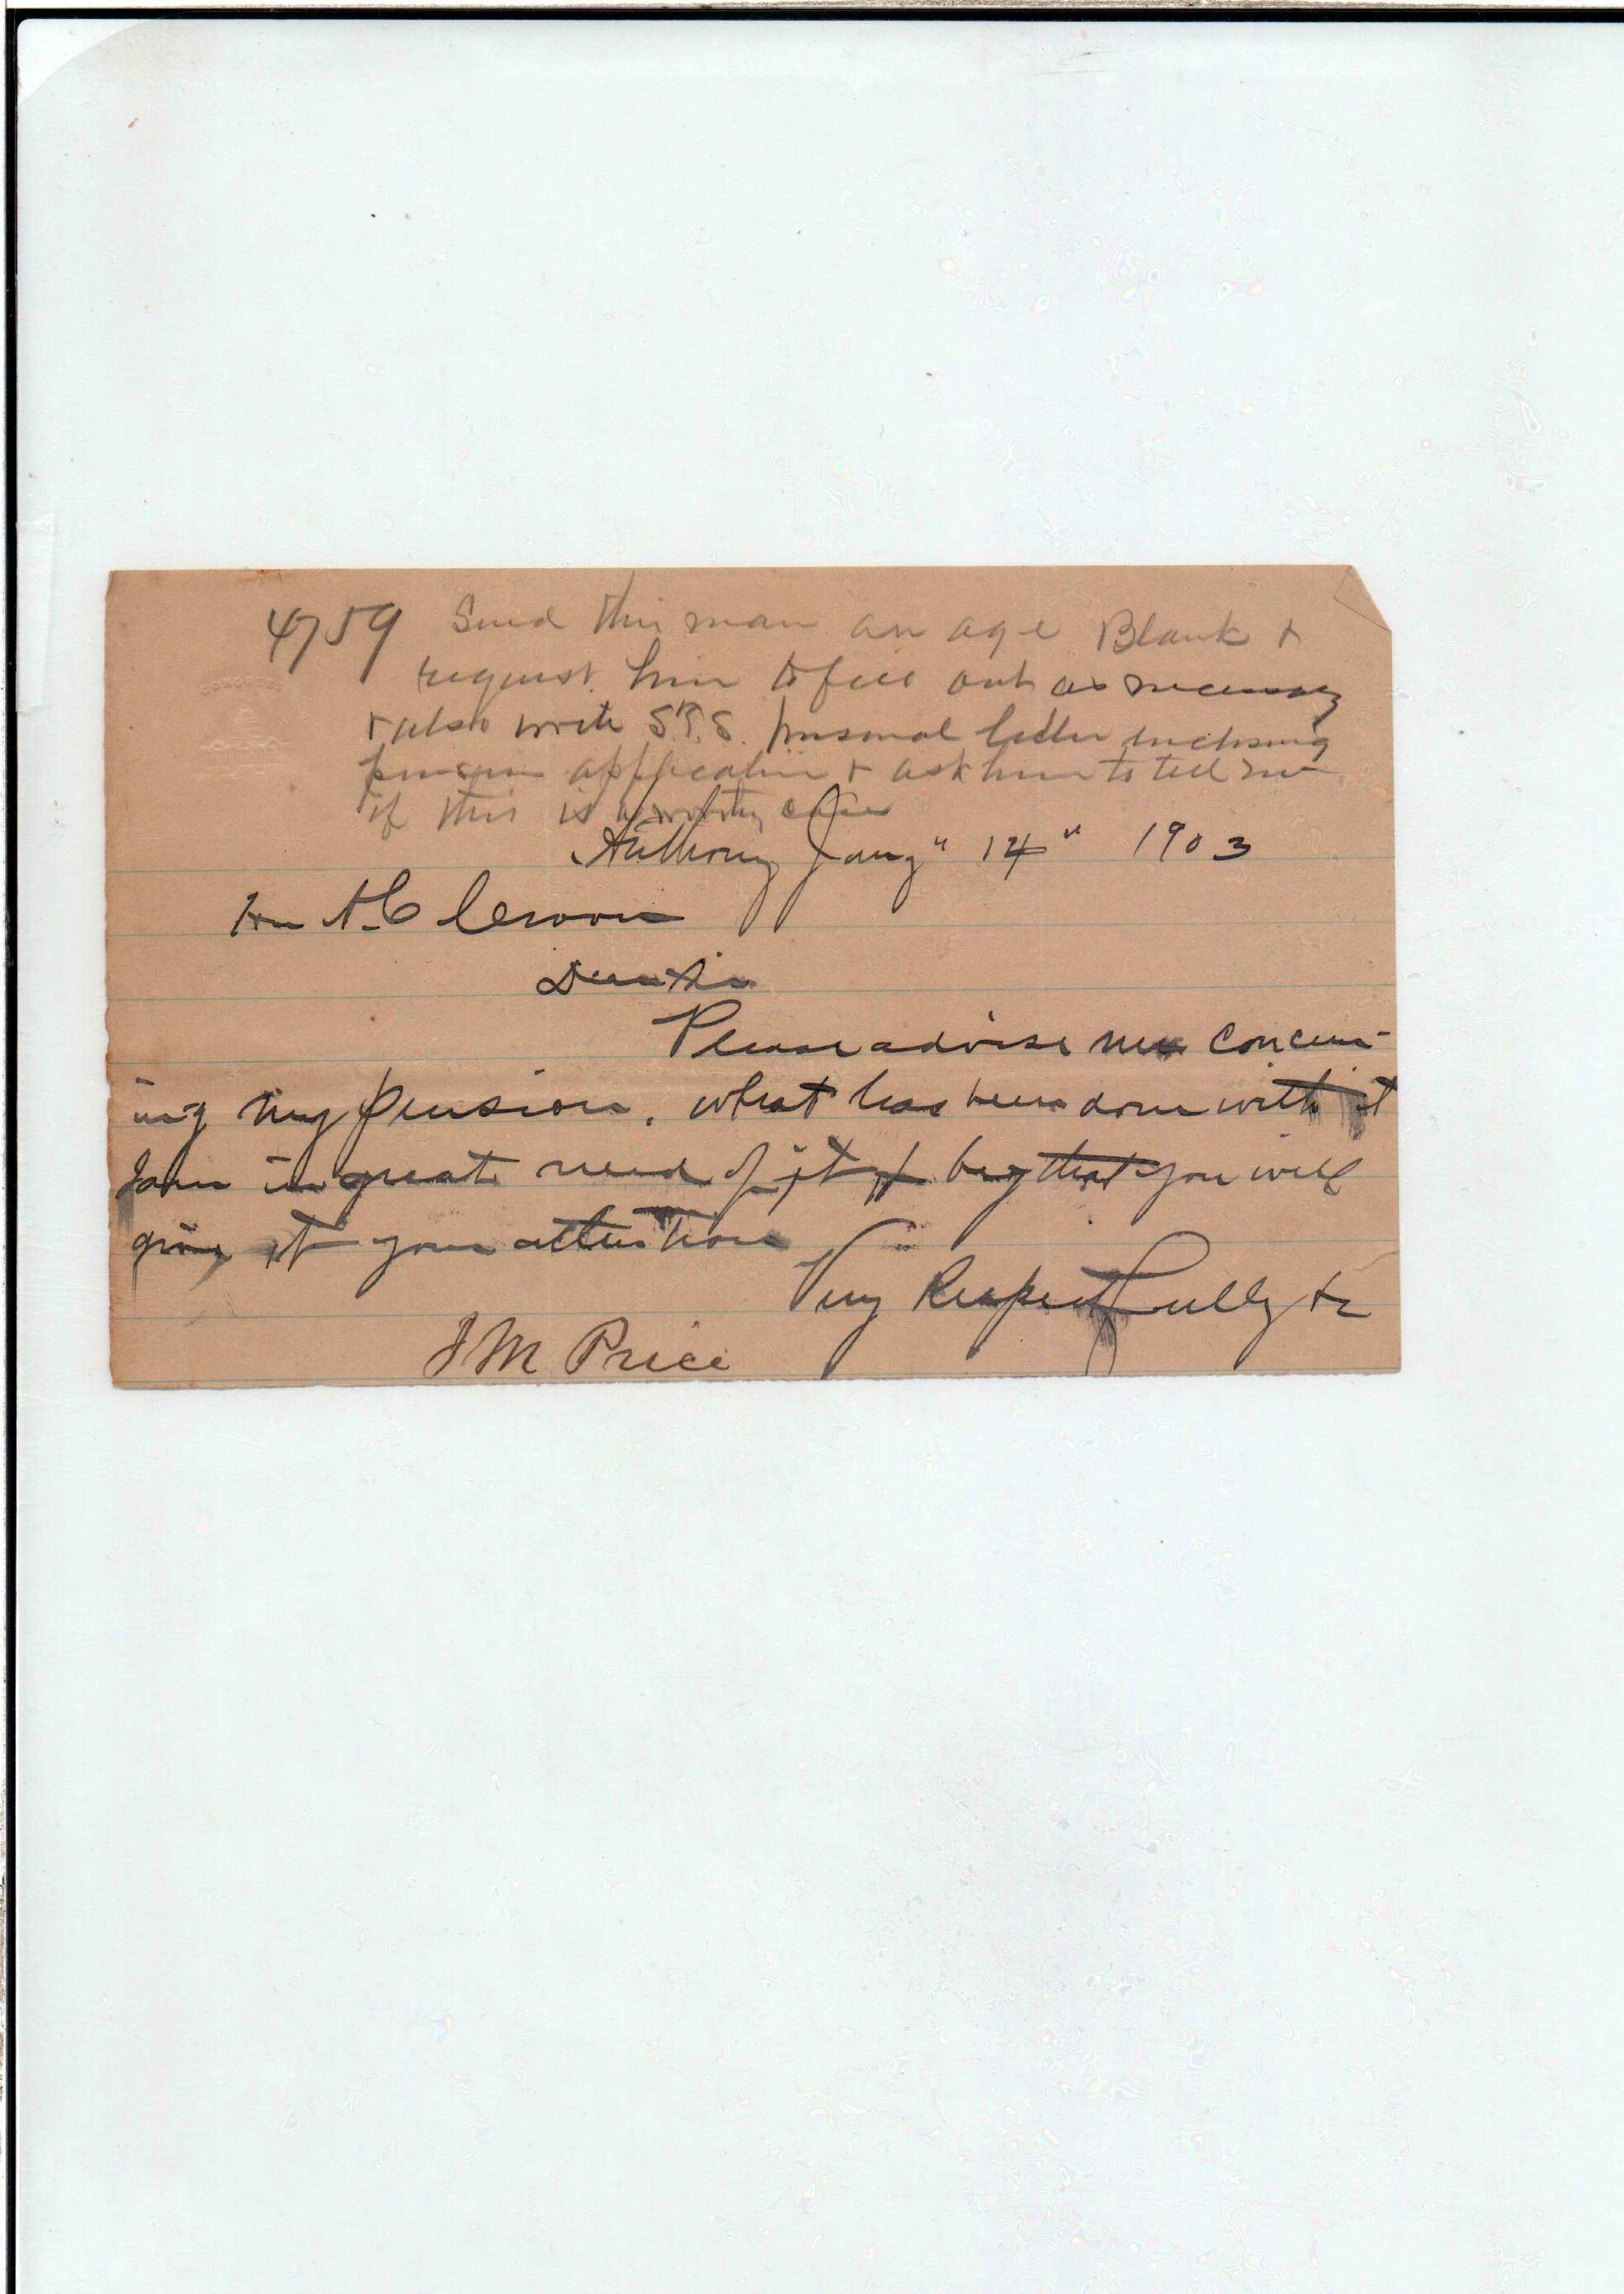 4759 Send this man an age Blank &
request him to fill out as necessary
& also write S.T.S. personal letter enclosing
pension application & ask him to tell me
if this is worthy case
Anthony Jany " 14 " 1903
Hon A C Croom
Dear Sir
Please advise me concern-
ing my pension. what has been done with it
I am in great need of it & beg that you will
give it your attention
Very Respectfully &c
J M Price